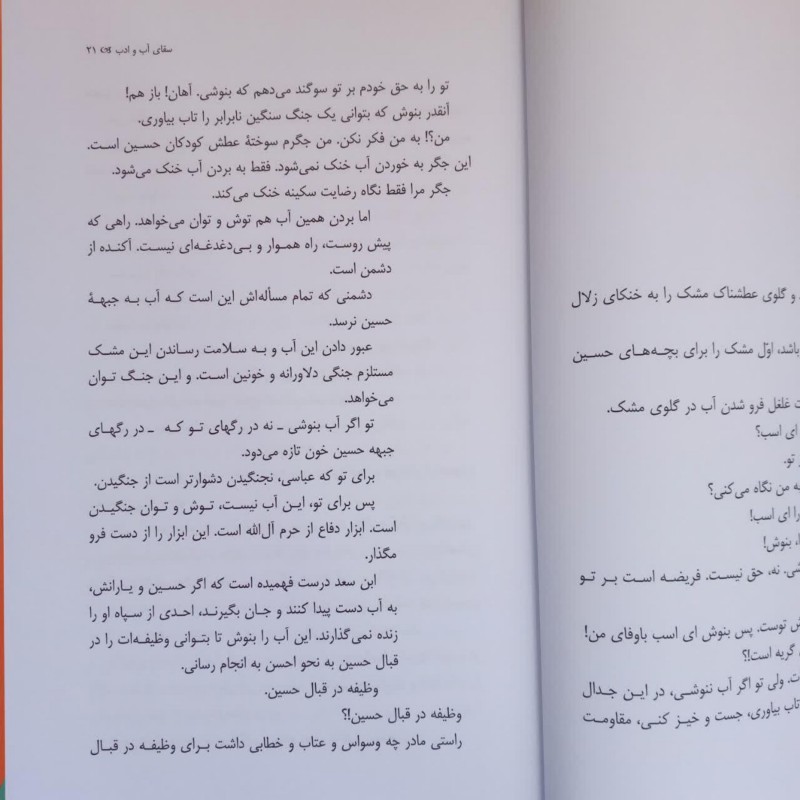 د و گلوی عطشناک مشک را به خنکای زلال
باشد، اوّل مشک را برای بچه‌های حسین
ت غلغل فرو شدن آب در گلوی مشک.
ای اسب؟
تو.
به من نگاه می‌کنی؟
را ای اسب!
بنوش!
نه، حق نیست. فریضه است بر تو
توست. پس بنوش ای اسب باوفای من!
گریه است!؟
ت. ولی تو اگر آب ننوشی، در این جدال
تاب بیاوری، جست و خیز کنی، مقاومت
سقای آب و ادب ۲۱
تو را به حق خودم بر تو سوگند می‌دهم که بنوشی. آهان! باز هم!
آنقدر بنوش که بتوانی یک جنگ سنگین نابرابر را تاب بیاوری.
من؟! به من فکر نکن. من جگرم سوختهٔ عطش کودکان حسین است.
این جگر به خوردن آب خنک نمی‌شود. فقط به بردن آب خنک می‌شود.
جگر مرا فقط نگاه رضایت سکینه خنک می‌کند.
اما بردن همین آب هم توش و توان می‌خواهد. راهی که
پیش روست، راه هموار و بی‌دغدغه‌ای نیست. آکنده از
دشمن است.
دشمنی که تمام مسأله‌اش این است که آب به جبههٔ
حسین نرسد.
عبور دادن این آب و به سلامت رساندن این مشک
مستلزم جنگی دلاورانه و خونین است. و این جنگ توان
می‌خواهد.
تو اگر آب بنوشی ـ نه در رگهای تو که ـ در رگهای
جبهه حسین خون تازه می‌دود.
برای تو که عباسی، نجنگیدن دشوارتر است از جنگیدن.
پس برای تو، این آب نیست، توش و توان جنگیدن
است. ابزار دفاع از حرم آل‌الله است. این ابزار را از دست فرو
مگذار.
ابن سعد درست فهمیده است که اگر حسین و یارانش،
به آب دست پیدا کنند و جان بگیرند، احدی از سپاه او را
زنده نمی‌گذارند. این آب را بنوش تا بتوانی وظیفه‌ات را در
قبال حسین به نحو احسن به انجام رسانی.
وظیفه در قبال حسین.
وظیفه در قبال حسین!؟
راستی مادر چه وسواس و عتاب و خطابی داشت برای وظیفه در قبال